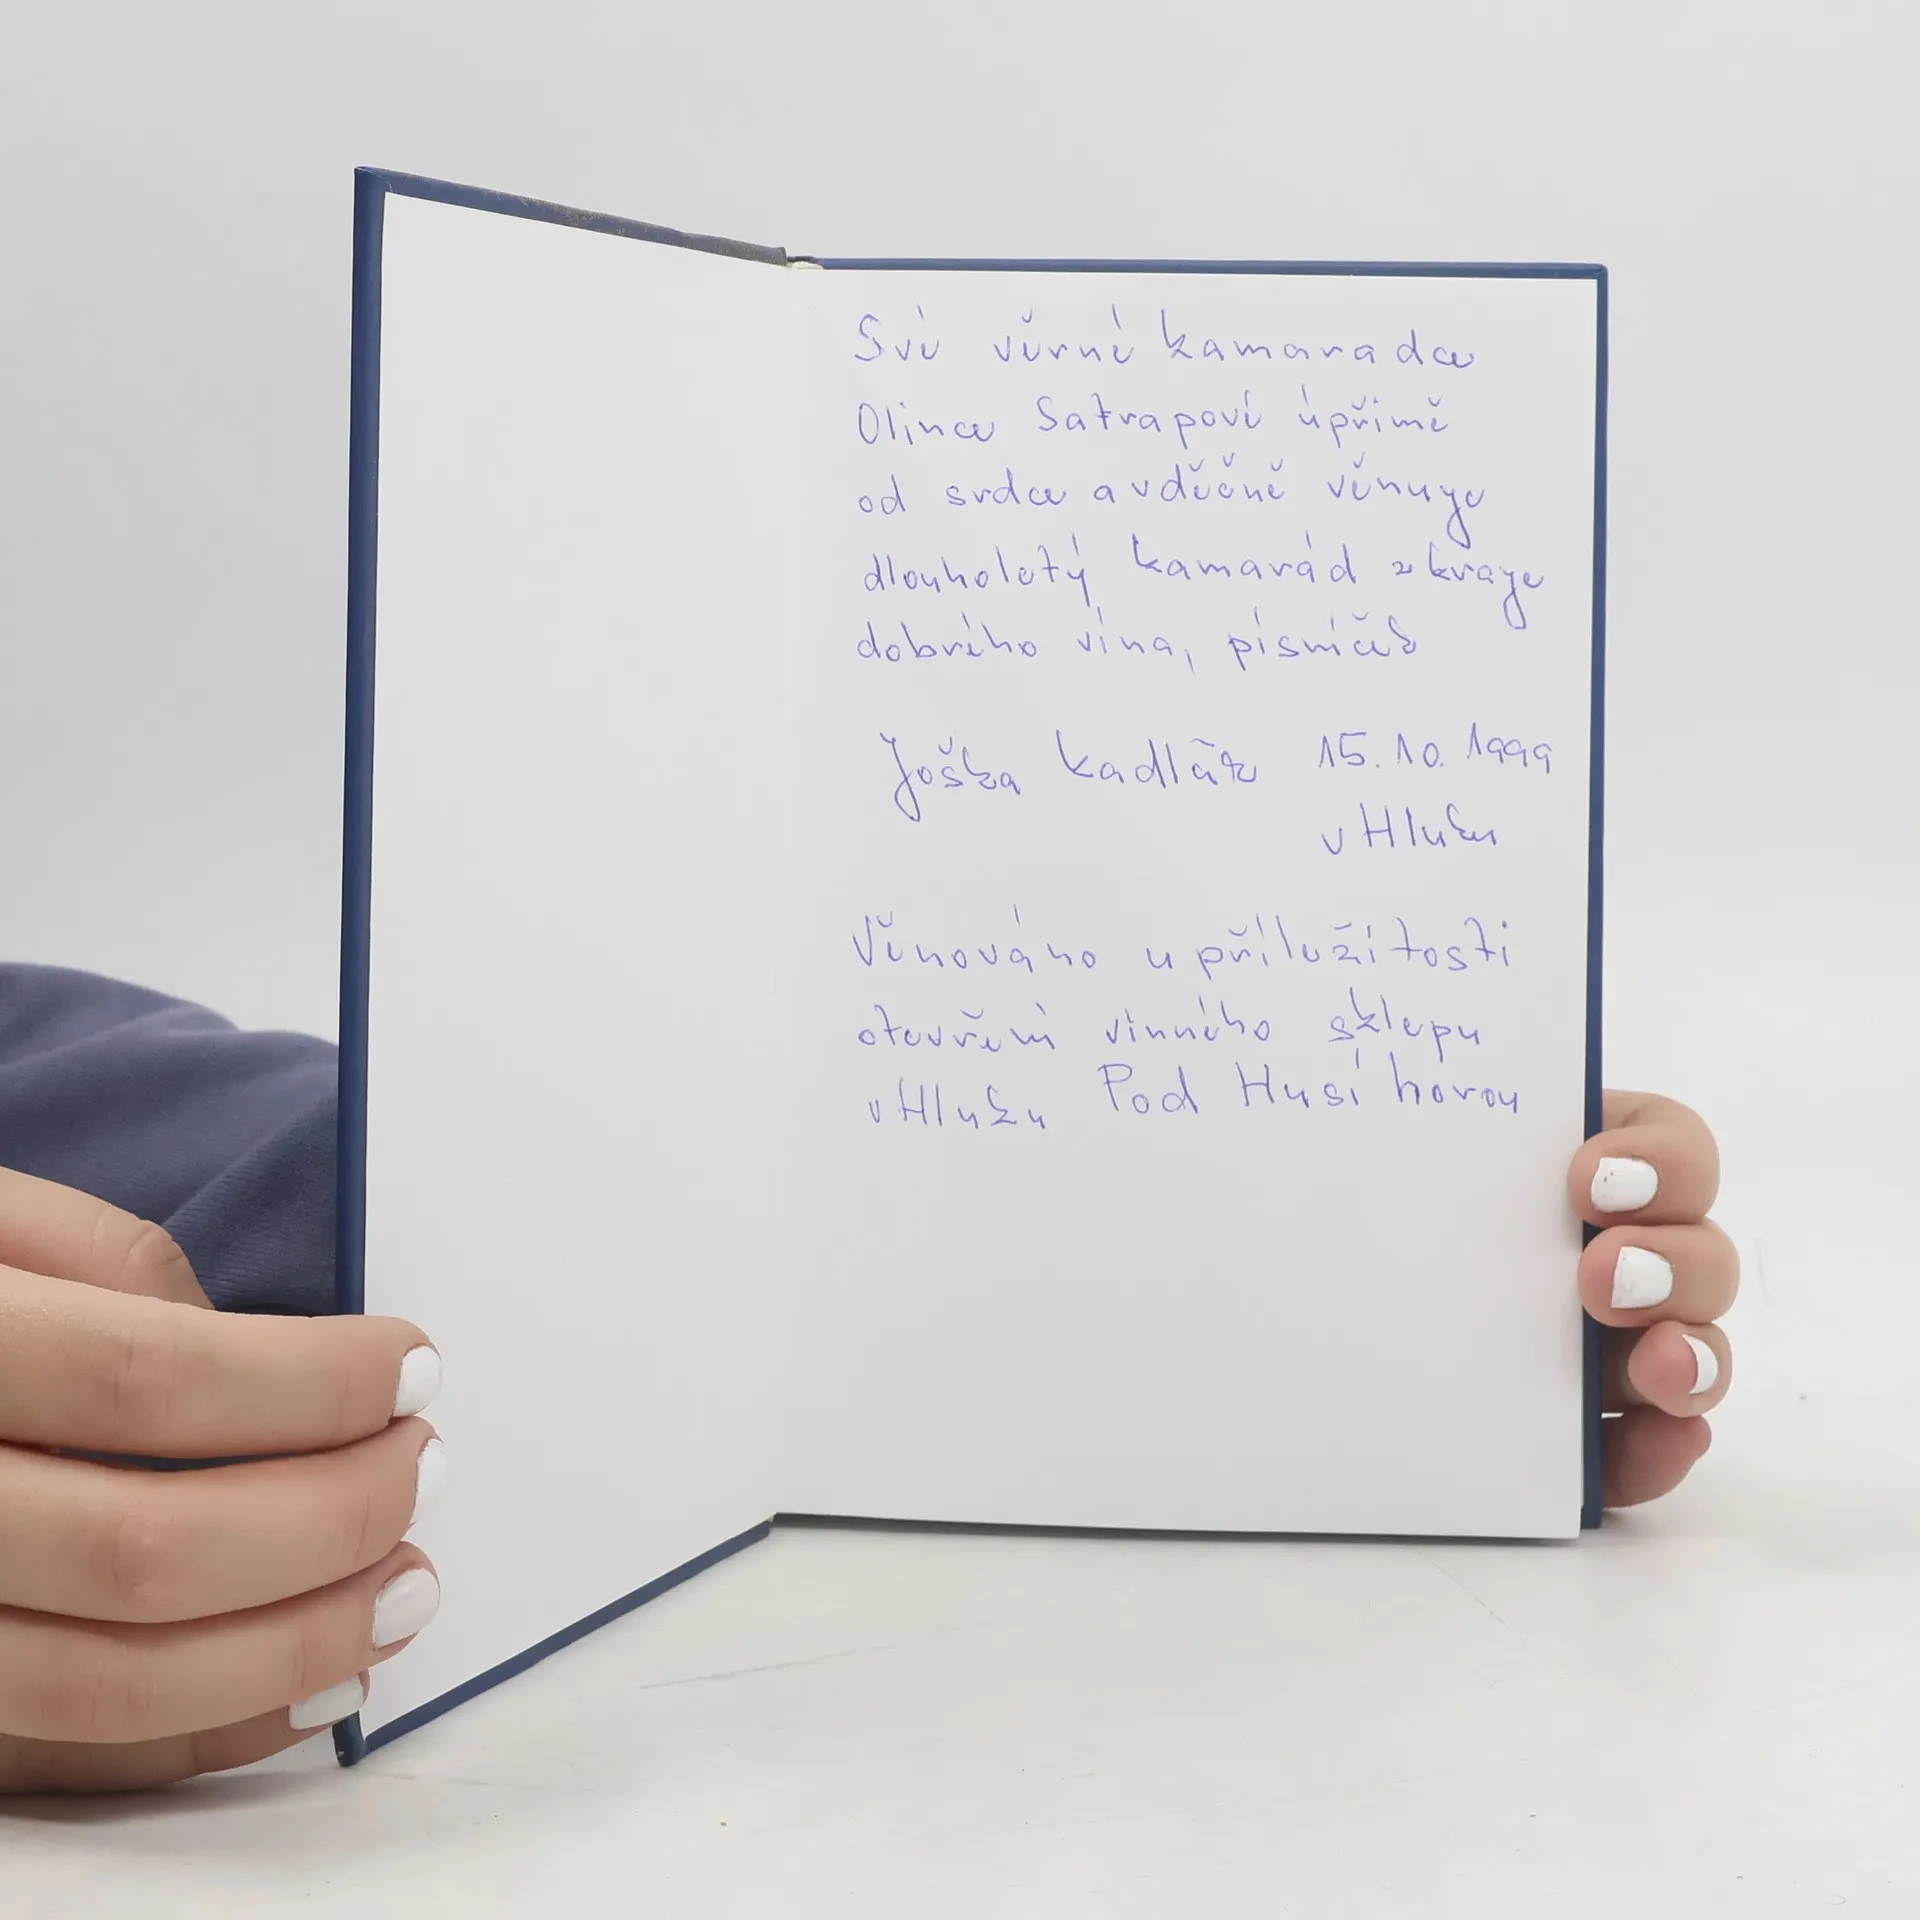 Své věrné kamaradce
Olince Satrapové úpřimě
od srdce a vděčně věnuje
dlouholetý kamarád z kraje
dobrého vína, písniček
Joška Kadlčák 15.10.1999
v Hluku
Věnováno u příležitosti
otevření vinného sklepu
v Hluku Pod Husí horou